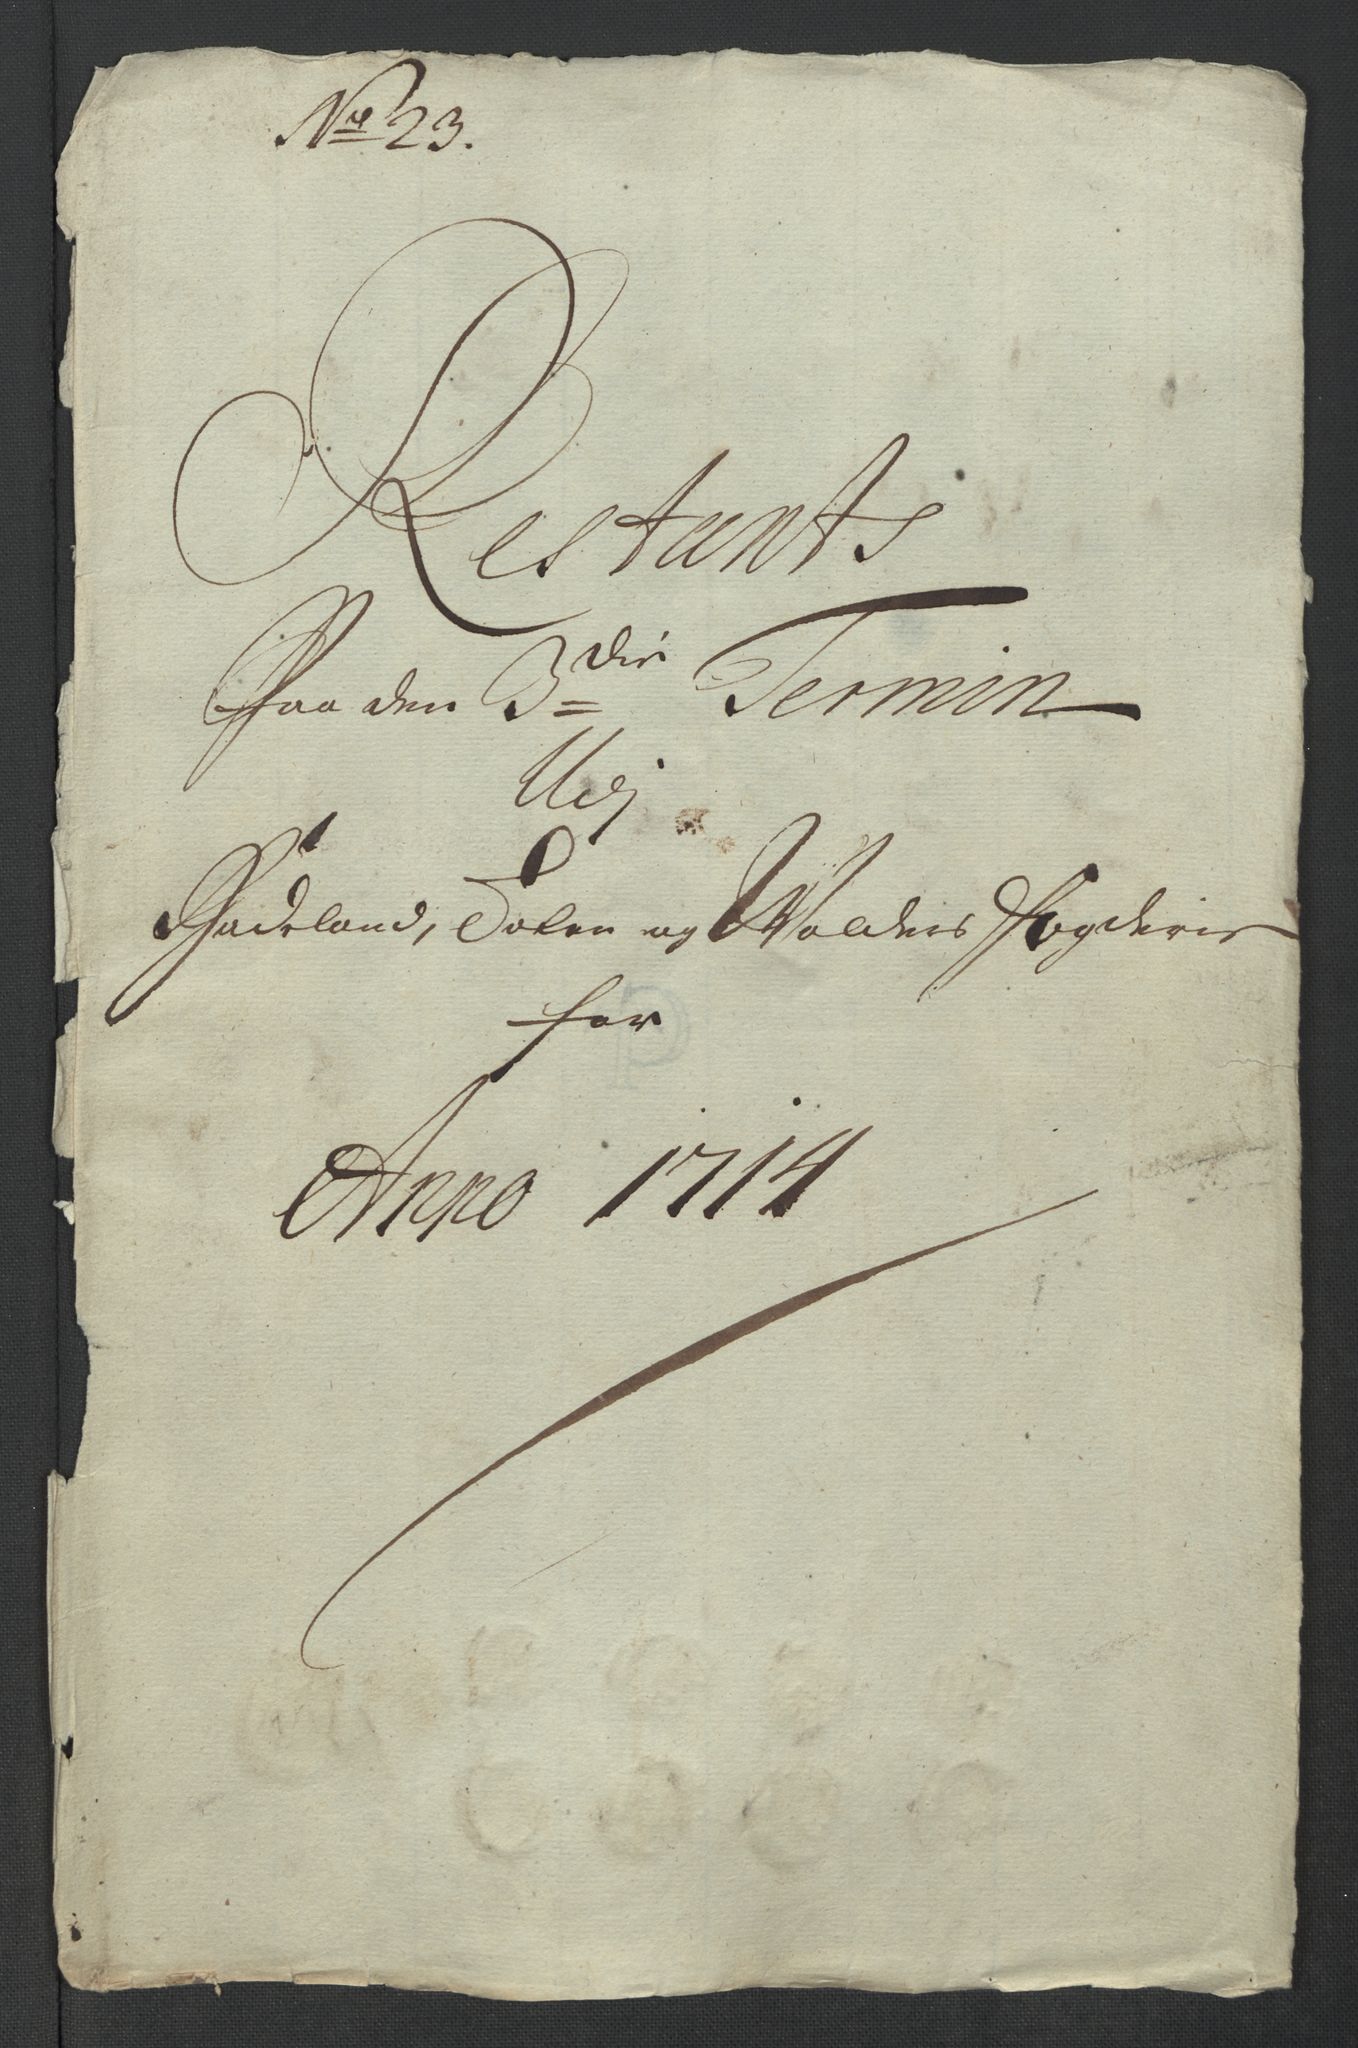 No 23.
Restants
Paa den 3die Termin
Udj
Hadeland, Toten og Walders Fogderie
for
Anno 1714